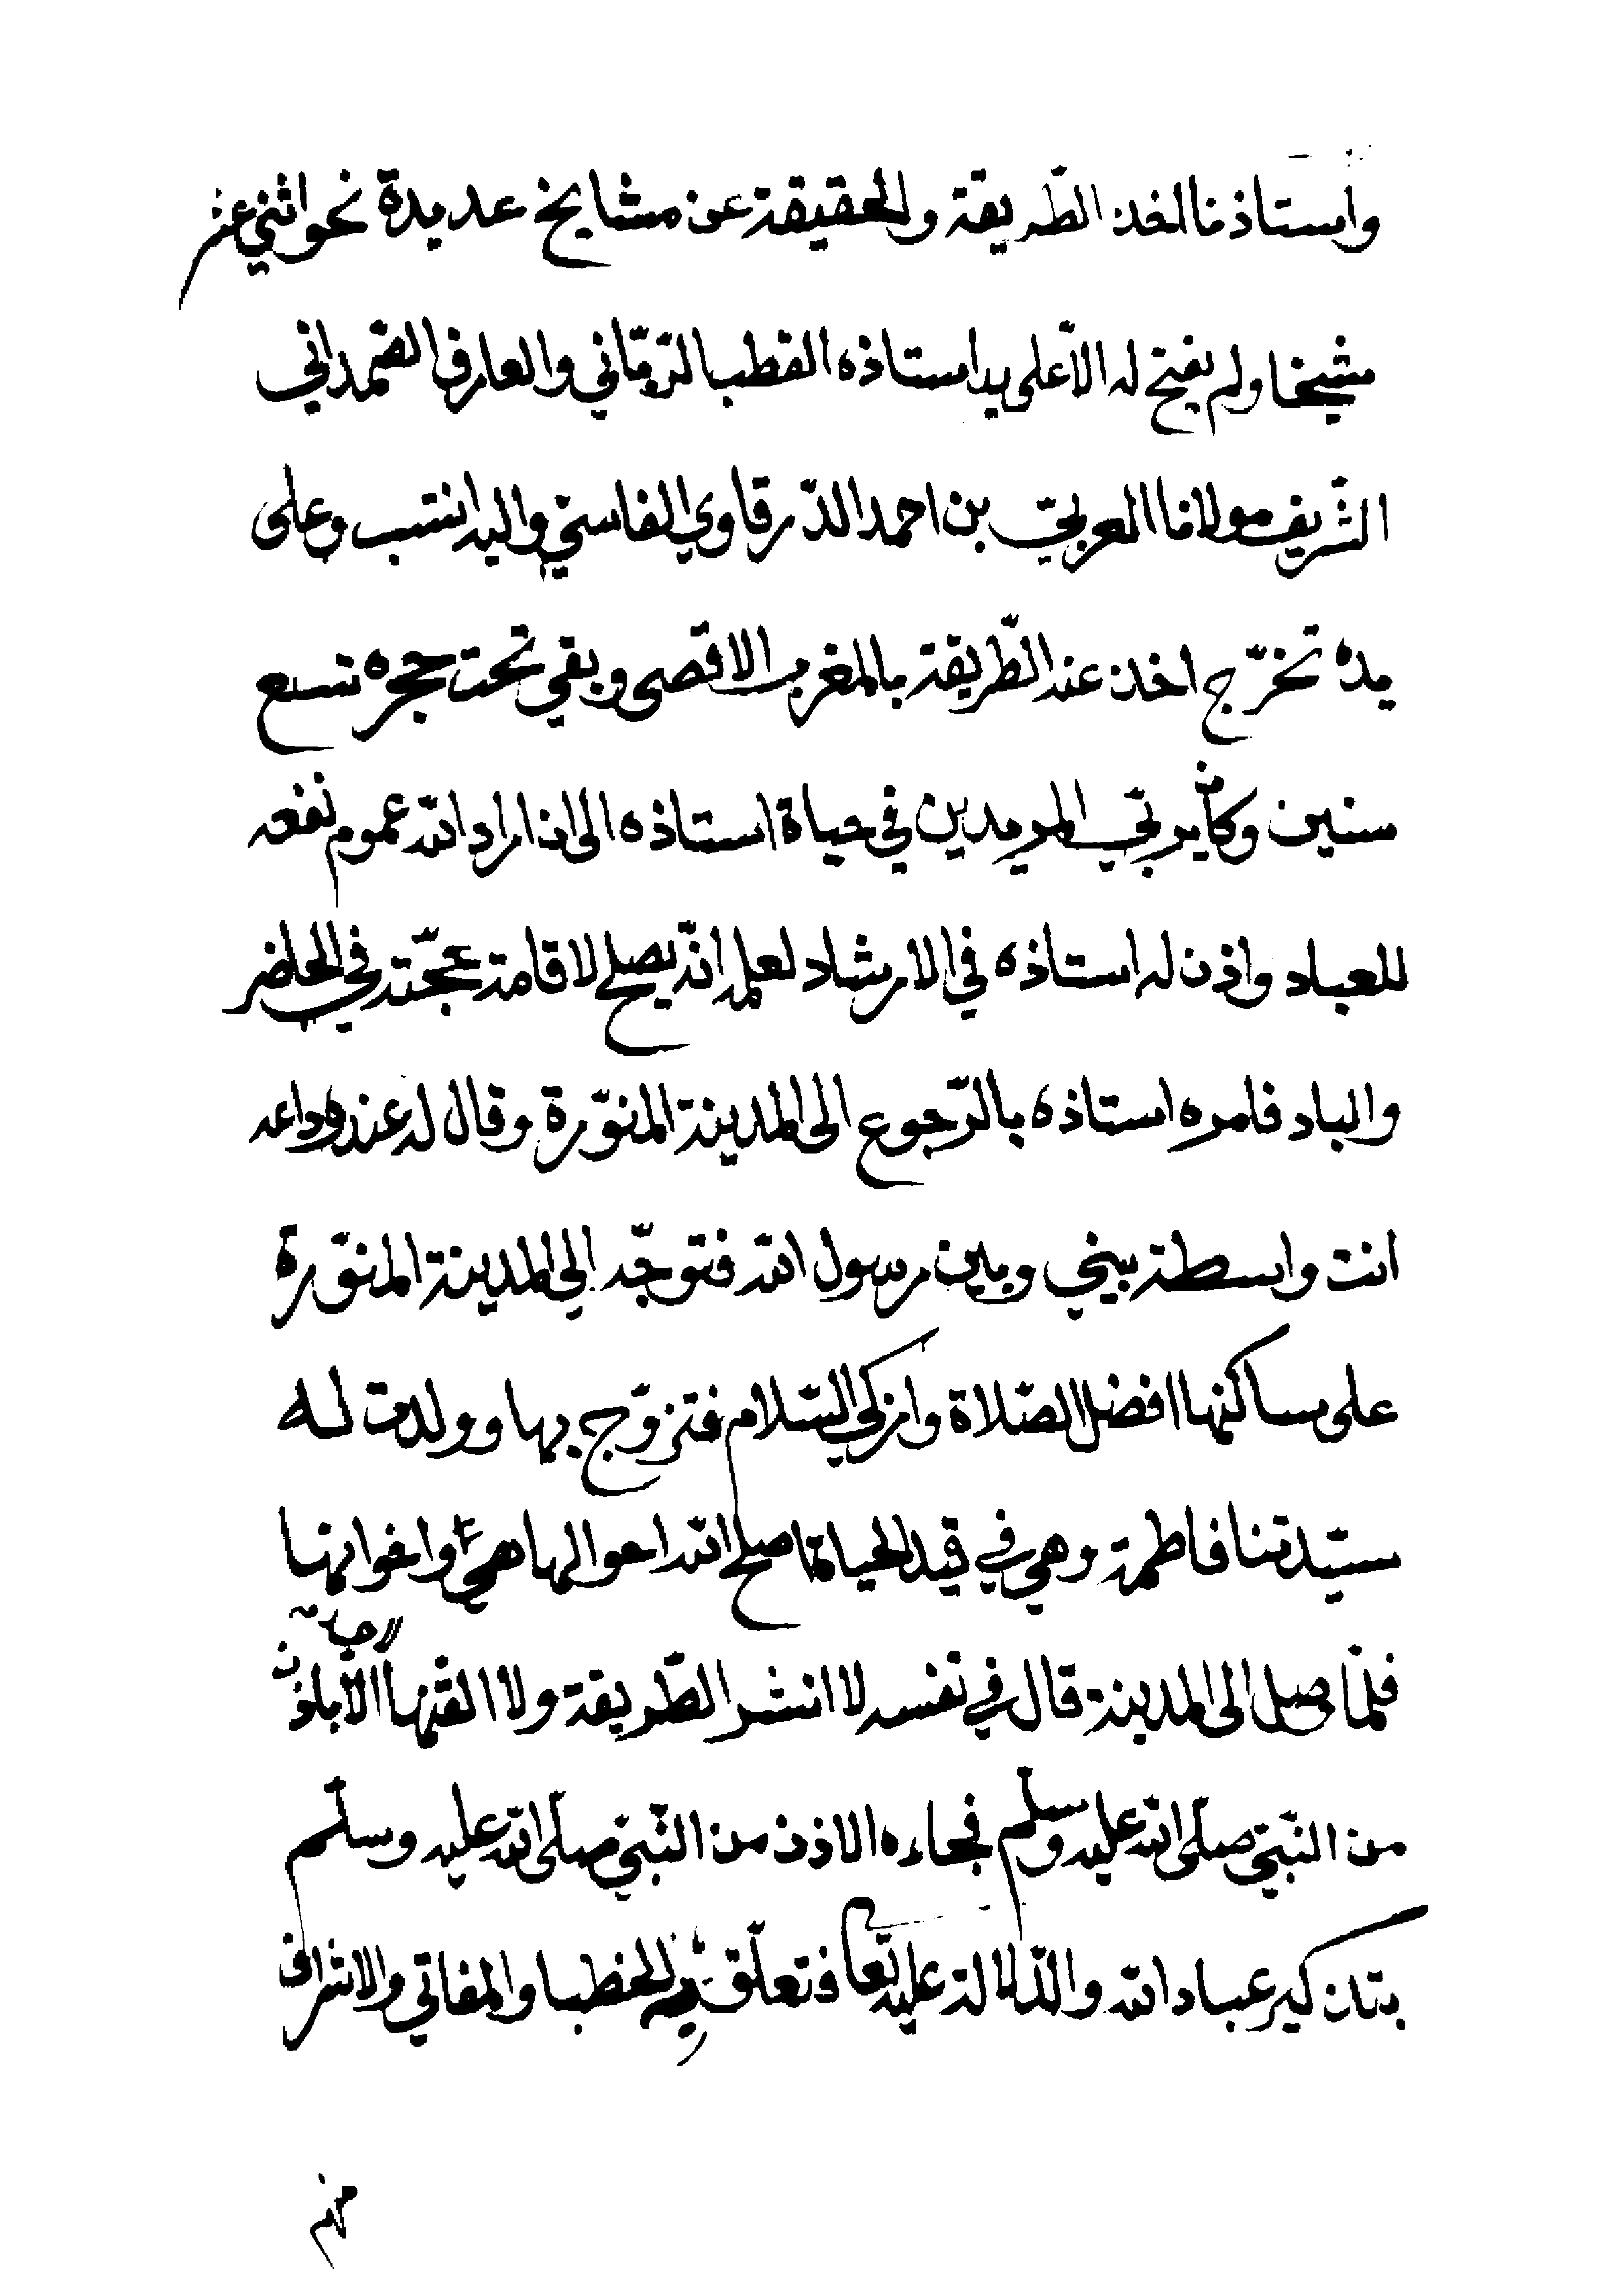 واستاذنا اخذ الطّريقة والحقيقة عن مشايخ عديدة نحو اثني عشر
شيخا ولم يفتح له الاّ على يد استاذه القطب الرّبّاني والعارف الصّمداني
الشّريف مولانا العربيّ بن احمد الدّرقاوي الفاسي واليه انتسب وعلى
يده تخرّج اخذ عنه الطّريقة بالمغرب الاقصى وبقي تحت حجره تسع
سنين وكان يربّي المريدين في حياة استاذه الى ان اراد الله عموم نفعه
للعباد واذن له استاذه في الارشاد لعلمه انّه يصلح لاقامة حجّته في الحاضر
والباد فامره استاذه بالرّجوع الى المدينة المنوّرة وقال له عند وداعه
انت واسطة بيني وبين رسول الله فتوجّه الى المدينة المنوّرة
على ساكنها افضل الصّلاة وازكى السّلام فتزوّج بها وولدت له
سيّدتنا فاطمة وهي في قيد الحياة اصلح الله احوالها هي واخوانها
فلمّا وصل الى المدينة قال في نفسه لا انشر الطّريقة ولا القّنها الاّ باذن
من النّبيّ صلّى الله عليه وسلّم فجاءه الاذن من النّبيّ صلّى الله عليه وسلّم
بتذكير عباد الله والدّلالة عليه تعا فتعلّق به الخطبا والمفاتي والاشراف
منهم